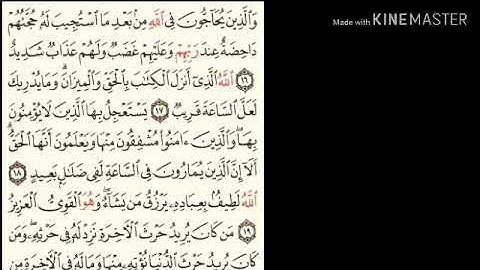 وَٱلَّذِينَ يُحَآجُّونَ فِى ٱللَّهِ مِنۢ بَعْدِ مَا ٱسْتُجِيبَ لَهُۥ حُجَّتُهُمْ
دَاحِضَةٌ عِندَ رَبِّهِمْ وَعَلَيْهِمْ غَضَبٌ وَلَهُمْ عَذَابٌ شَدِيدٌ
١٦ ٱللَّهُ ٱلَّذِىٓ أَنزَلَ ٱلْكِتَٰبَ بِٱلْحَقِّ وَٱلْمِيزَانَ ۗ وَمَا يُدْرِيكَ
لَعَلَّ ٱلسَّاعَةَ قَرِيبٌ ١٧ يَسْتَعْجِلُ بِهَا ٱلَّذِينَ لَا يُؤْمِنُونَ
بِهَا ۖ وَٱلَّذِينَ ءَامَنُوا۟ مُشْفِقُونَ مِنْهَا وَيَعْلَمُونَ أَنَّهَا ٱلْحَقُّ ۗ
أَلَآ إِنَّ ٱلَّذِينَ يُمَارُونَ فِى ٱلسَّاعَةِ لَفِى ضَلَٰلٍۭ بَعِيدٍ ١٨
ٱللَّهُ لَطِيفٌۢ بِعِبَادِهِۦ يَرْزُقُ مَن يَشَآءُ ۖ وَهُوَ ٱلْقَوِىُّ ٱلْعَزِيزُ
١٩ مَن كَانَ يُرِيدُ حَرْثَ ٱلْءَاخِرَةِ نَزِدْ لَهُۥ فِى حَرْثِهِۦ ۖ وَمَن
كَانَ يُرِيدُ حَرْثَ ٱلدُّنْيَا نُؤْتِهِۦ مِنْهَا وَمَا لَهُۥ فِى ٱلْءَاخِرَةِ مِن
Made with KINEMASTER